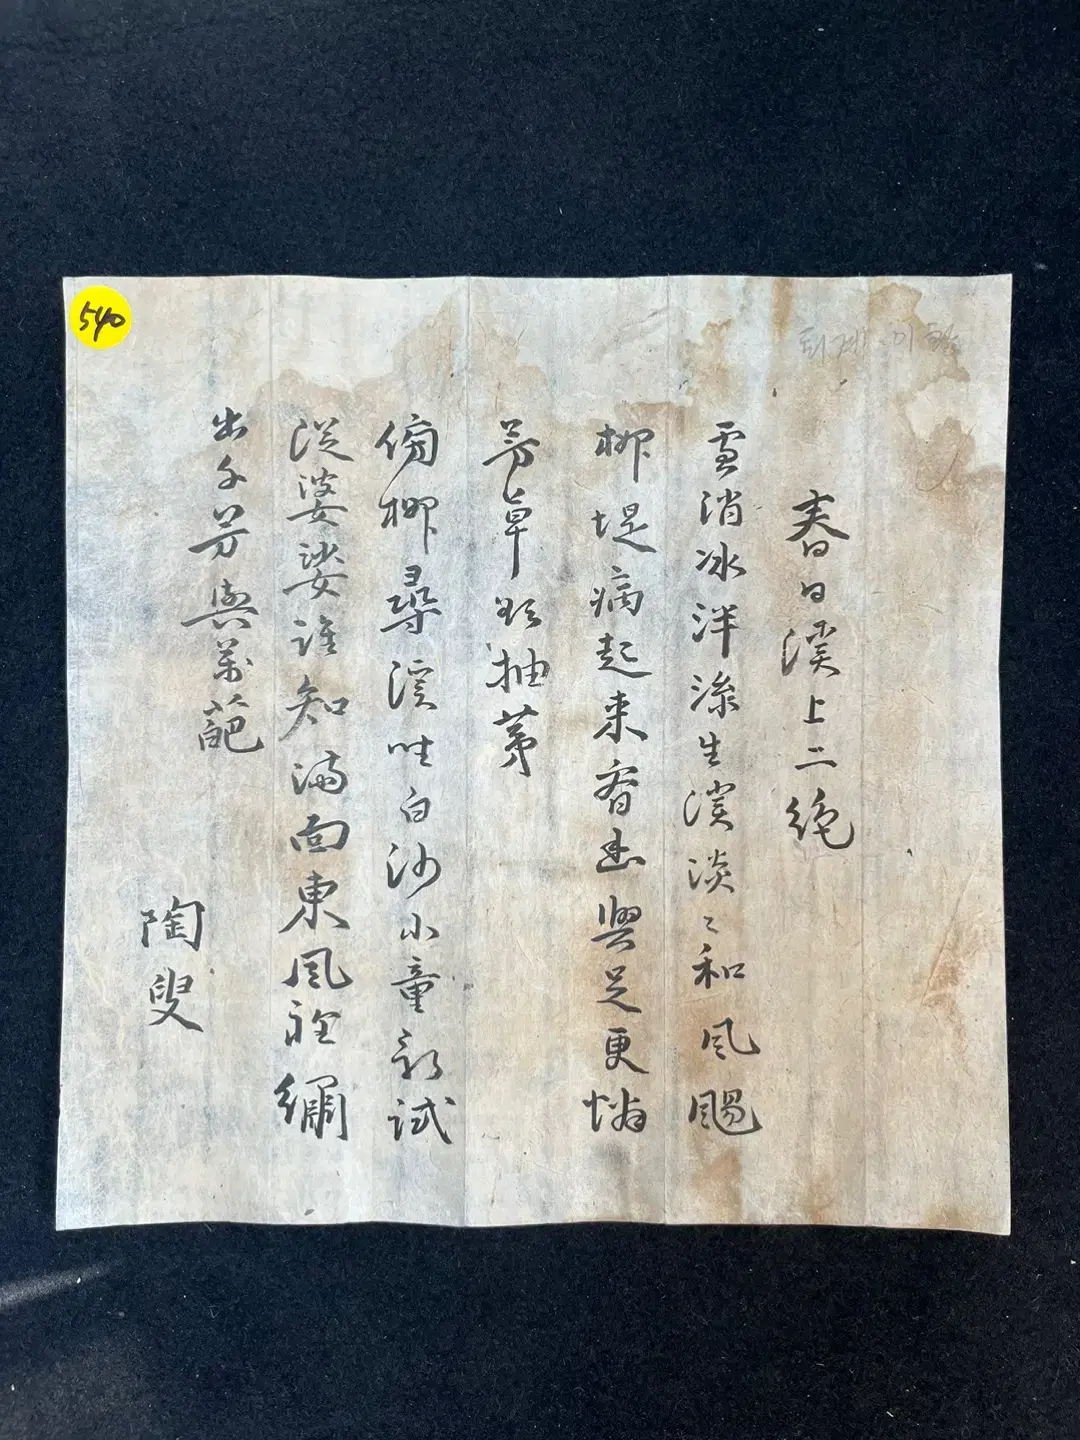 540
퇴계 이황
春日溪上二絶
雪消冰泮淥生溪淡〻和風颺
柳堤病起來看幽興足更憐
芳草欲抽荑
傍柳尋溪坐白沙小童新試
從婆娑誰知滿面東風裡繡
出千芳與萬葩
陶叟